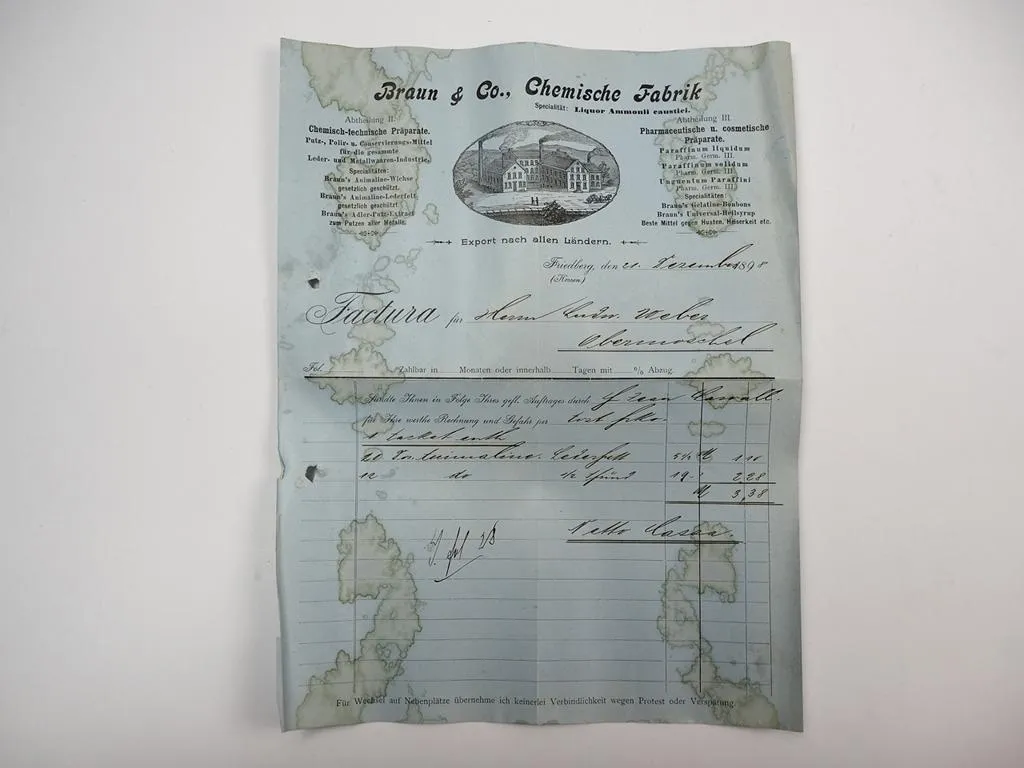 Braun & Co., Chemische Fabrik
Specialität: Liquor Ammonii caustici.
Abtheilung II.
Chemisch-technische Präparate.
Putz-, Polir- u. Conservierungs-Mittel
für die gesammte
Leder- und Metallwaaren-Industrie.
Specialitäten:
Braun's Animaline-Wichse
gesetzlich geschützt.
Braun's Animaline-Lederfett
gesetzlich geschützt.
Braun's Adler-Putz-Extract
zum Putzen aller Metalle.
Abtheilung III.
Pharmaceutische u. cosmetische
Präparate.
Paraffinum liquidum
Pharm. Germ. III.
Paraffinum solidum
Pharm. Germ. III.
Unguentum Paraffini
Pharm. Germ. III.
Specialitäten:
Braun's Gelatine-Bonbons
Braun's Universal-Heilsyrup
Beste Mittel gegen Husten, Heiserkeit etc.
Export nach allen Ländern.
Friedberg, den 21. Dezember 1898
(Hessen)
Factura für Herrn Ludw. Weber
Obermoschel
Fol. Zahlbar in Monaten oder innerhalb Tagen mit % Abzug.
Sandte Ihnen in Folge Ihres gefl. Auftrages durch
für Ihre werthe Rechnung und Gefahr per Post frko.
20 Lederfett
12 do
M 3,38
Netto Cassa.
Für Wechsel auf Nebenplätze übernehme ich keinerlei Verbindlichkeit wegen Protest oder Verspätung.